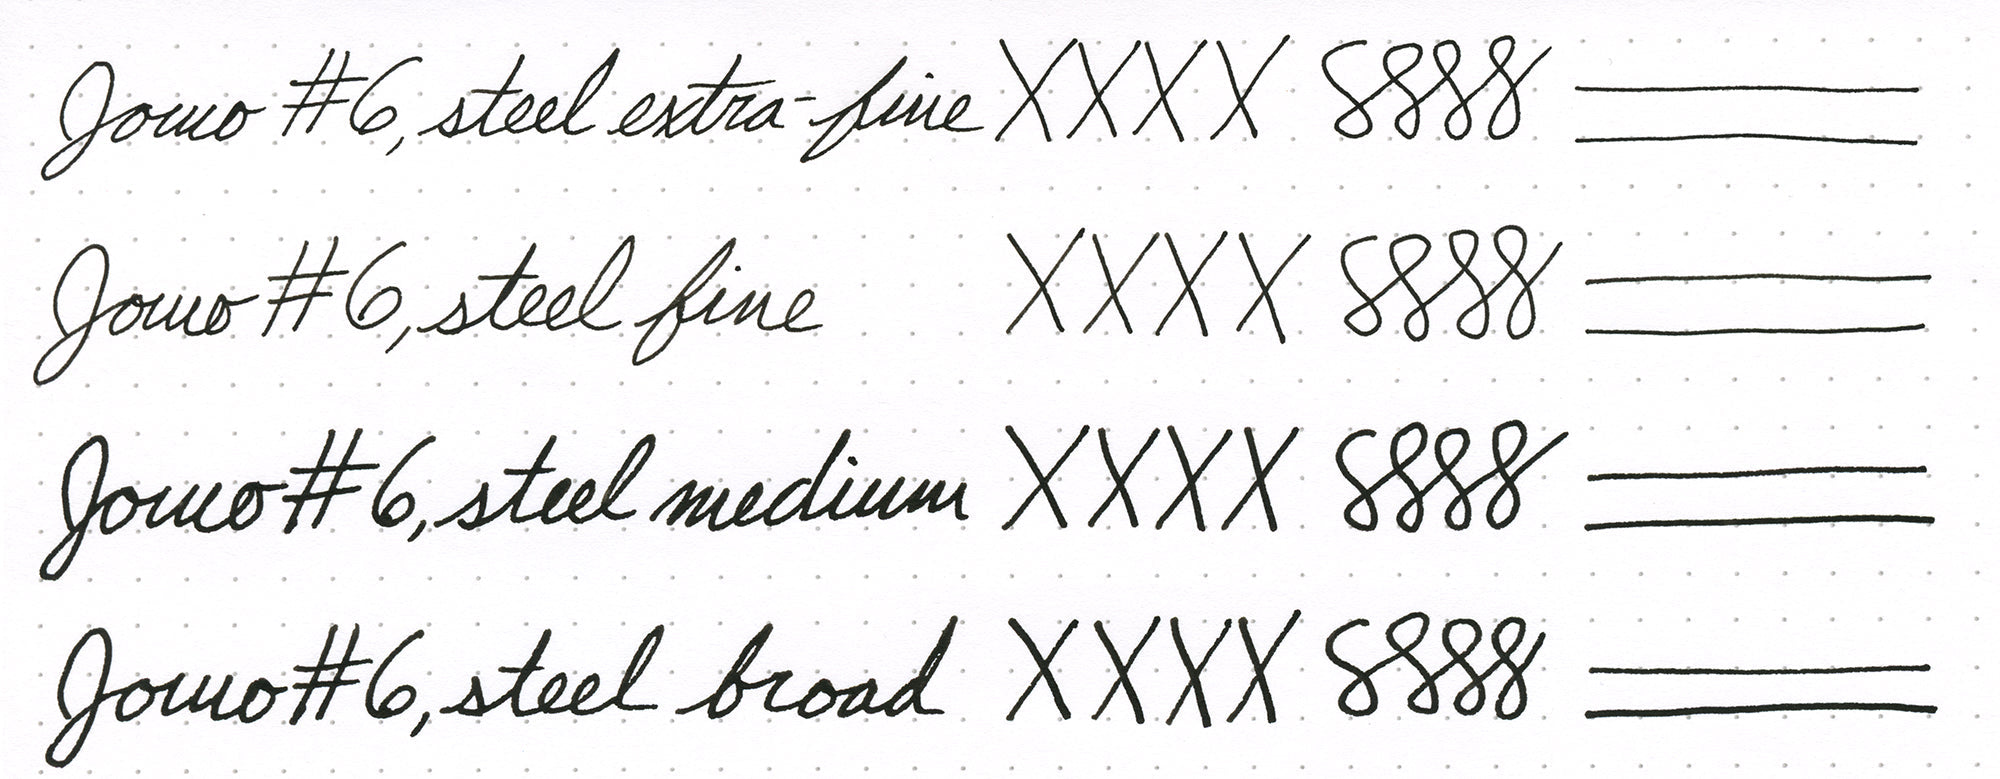 Jowo #6, steel extra-fine XXXX 8888
Jowo #6, steel fine XXXX 8888
Jowo #6, steel medium XXXX 8888
Jowo #6, steel broad XXXX 8888